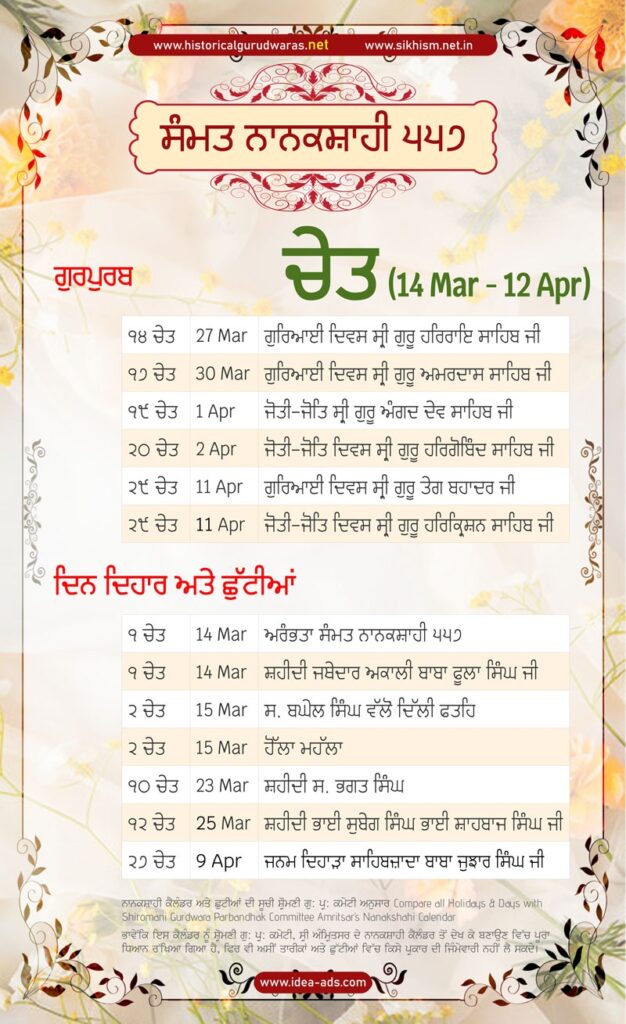 www.historicalgurudwaras.net www.sikhism.net.in
ਸੰਮਤ ਨਾਨਕਸ਼ਾਹੀ ੫੫੭
ਗੁਰਪੁਰਬ ਚੇਤ (14 Mar - 12 Apr)
੧੪ ਚੇਤ 27 Mar ਗੁਰਿਆਈ ਦਿਵਸ ਸ੍ਰੀ ਗੁਰੂ ਹਰਿਰਾਇ ਸਾਹਿਬ ਜੀ
੧੭ ਚੇਤ 30 Mar ਗੁਰਿਆਈ ਦਿਵਸ ਸ੍ਰੀ ਗੁਰੂ ਅਮਰਦਾਸ ਸਾਹਿਬ ਜੀ
੧੯ ਚੇਤ 1 Apr ਜੋਤੀ-ਜੋਤਿ ਸ੍ਰੀ ਗੁਰੂ ਅੰਗਦ ਦੇਵ ਸਾਹਿਬ ਜੀ
੨੦ ਚੇਤ 2 Apr ਜੋਤੀ-ਜੋਤਿ ਦਿਵਸ ਸ੍ਰੀ ਗੁਰੂ ਹਰਿਗੋਬਿੰਦ ਸਾਹਿਬ ਜੀ
੨੯ ਚੇਤ 11 Apr ਗੁਰਿਆਈ ਦਿਵਸ ਸ੍ਰੀ ਗੁਰੂ ਤੇਗ ਬਹਾਦਰ ਜੀ
੨੯ ਚੇਤ 11 Apr ਜੋਤੀ-ਜੋਤਿ ਦਿਵਸ ਸ੍ਰੀ ਗੁਰੂ ਹਰਿਕ੍ਰਿਸ਼ਨ ਸਾਹਿਬ ਜੀ
ਦਿਨ ਦਿਹਾਰ ਅਤੇ ਛੁੱਟੀਆਂ
੧ ਚੇਤ 14 Mar ਅਰੰਭਤਾ ਸੰਮਤ ਨਾਨਕਸ਼ਾਹੀ ੫੫੭
੧ ਚੇਤ 14 Mar ਸ਼ਹੀਦੀ ਜਥੇਦਾਰ ਅਕਾਲੀ ਬਾਬਾ ਫੂਲਾ ਸਿੰਘ ਜੀ
੨ ਚੇਤ 15 Mar ਸ. ਬਘੇਲ ਸਿੰਘ ਵੱਲੋਂ ਦਿੱਲੀ ਫਤਹਿ
੨ ਚੇਤ 15 Mar ਹੋੱਲਾ ਮਹੱਲਾ
੧੦ ਚੇਤ 23 Mar ਸ਼ਹੀਦੀ ਸ. ਭਗਤ ਸਿੰਘ
੧੨ ਚੇਤ 25 Mar ਸ਼ਹੀਦੀ ਭਾਈ ਸੁਬੇਗ ਸਿੰਘ ਭਾਈ ਸ਼ਾਹਬਾਜ ਸਿੰਘ ਜੀ
੨੭ ਚੇਤ 9 Apr ਜਨਮ ਦਿਹਾੜਾ ਸਾਹਿਬਜ਼ਾਦਾ ਬਾਬਾ ਜੁਝਾਰ ਸਿੰਘ ਜੀ
ਨਾਨਕਸ਼ਾਹੀ ਕੈਲੰਡਰ ਅਤੇ ਛੁਟੀਆਂ ਦੀ ਸੂਚੀ ਸ਼੍ਰੋਮਣੀ ਗੁ: ਪ੍ਰ: ਕਮੇਟੀ ਅਨੁਸਾਰ Compare all Holidays & Days with
Shiromani Gurdwara Parbandhak Committee Amritsar's Nanakshahi Calendar
ਭਾਵੇਂਕਿ ਇਸ ਕੈਲੰਡਰ ਨੂੰ ਸ਼੍ਰੋਮਣੀ ਗੁ: ਪ੍ਰ: ਕਮੇਟੀ, ਸ੍ਰੀ ਅੰਮ੍ਰਿਤਸਰ ਦੇ ਨਾਨਕਸ਼ਾਹੀ ਕੈਲੰਡਰ ਤੋਂ ਦੇਖ ਕੇ ਬਣਾਉਣ ਵਿੱਚ ਪੂਰਾ
ਧਿਆਨ ਰੱਖਿਆ ਗਿਆ ਹੈ, ਫਿਰ ਵੀ ਅਸੀਂ ਤਾਰੀਕਾਂ ਅਤੇ ਛੁੱਟੀਆਂ ਵਿੱਚ ਕਿਸੇ ਪ੍ਰਕਾਰ ਦੀ ਜਿੰਮੇਵਾਰੀ ਨਹੀਂ ਲੈ ਸਕਦੇ।
www.idea-ads.com